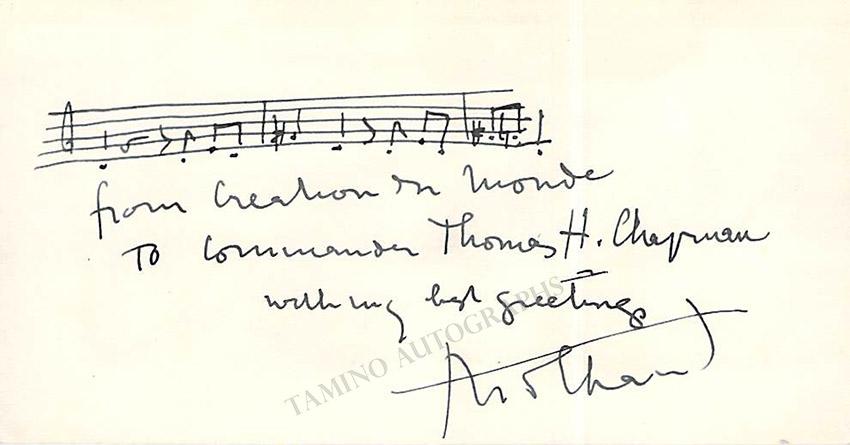 from Creation du Monde
To Commander Thomas H. Chapman
with my best greetings
Milhaud
TAMINO AUTOGRAPHS